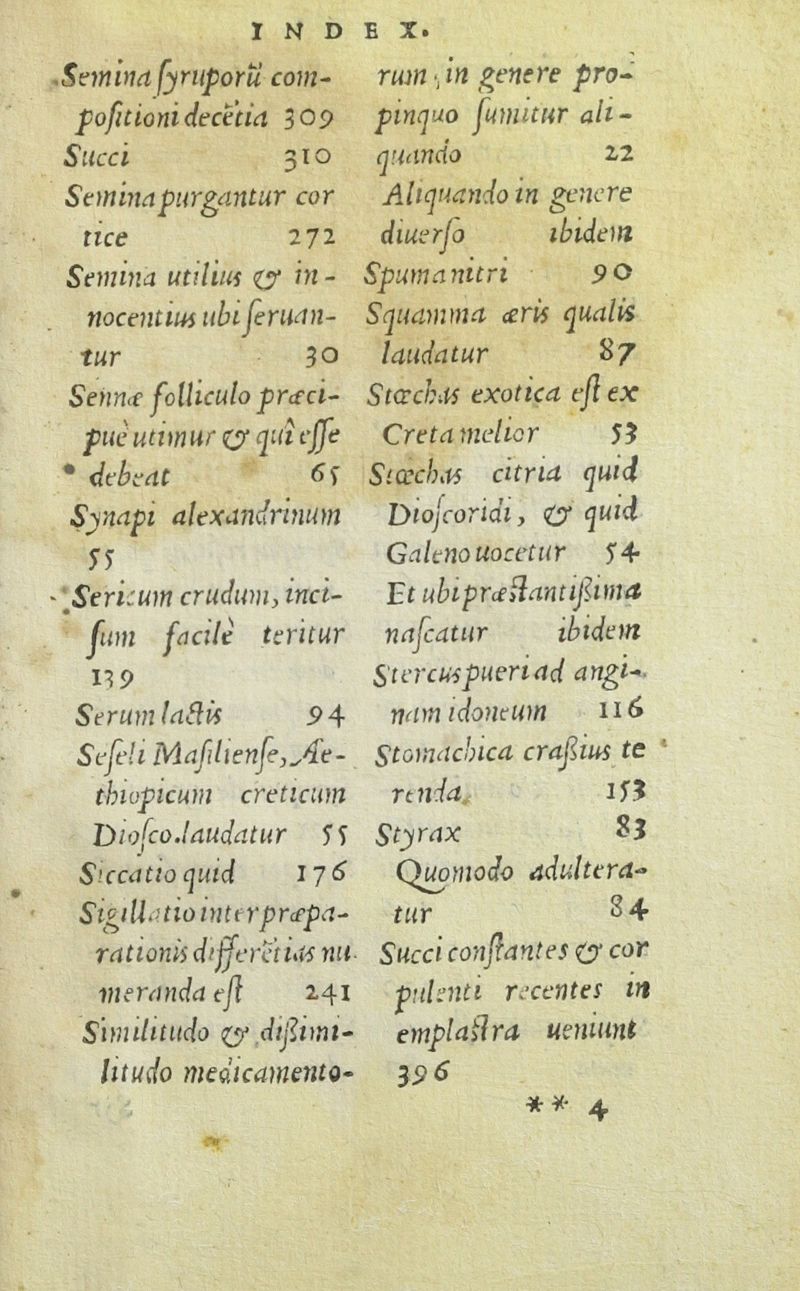 INDEX.
Semina ſyruporū com-
poſitioni decētia 309
Succi 310
Semina purgantur cor
tice 272
Semina utilius & in-
nocentius ubi ſeruan-
tur 30
Sennæ folliculo præci-
puè utimur & quî eſſe
debeat 65
Synapi alexandrinum
55
Sericum crudum, inci-
ſum facilè teritur
139
Serum lactis 94
Seſeli Maſsilienſe, Ae-
thiopicum creticum
Dioſco. laudatur 55
Siccatio quid 176
Sigillatio inter præpa-
rationis differētias nu-
meranda eſt 241
Similitudo & diſsimi-
litudo medicamento-
rum, in genere pro-
pinquo ſumitur ali-
quando 22
Aliquando in genere
diuerſo ibidem
Spuma nitri 90
Squamma æris qualis
laudatur 87
Stœchas exotica eſt ex
Creta melior 53
Stœchas citria quid
Dioſcoridi, & quid
Galeno uocetur 54
Et ubi præſtantiſsima
naſcatur ibidem
Stercus pueri ad angi-
nam idoneum 116
Stomachica craſsius te
renda 153
Styrax 83
Quomodo adultera-
tur 84
Succi conſtantes & cor
pulenti recentes in
emplaſtra ueniunt
396
** 4